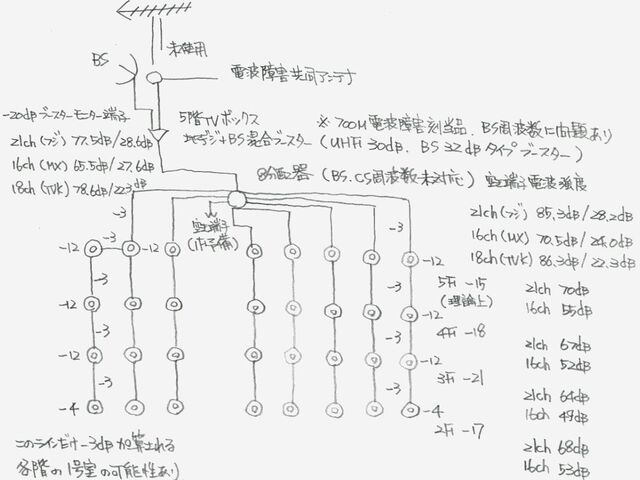 未使用
BS
電波障害共同アンテナ
-20dBブースターモニター端子
5階TVボックス
※700M電波障害刻当品、BS周波数に問題あり
21ch(フジ) 77.5dB/28.6dB
地デジ+BS混合ブースター (UHF 30dB、BS 32dBタイプブースター)
16ch(MX) 65.5dB/27.6dB
8分配器 (BS、CS周波数未対応)
空端子電波強度
18ch(TVK) 78.6dB/22.3dB
21ch(フジ) 85.3dB/28.2dB
16ch(MX) 70.5dB/24.0dB
18ch(TVK) 86.3dB/22.3dB
空端子
(1个予備)
-3
-3
-3
-12
-12
-12
5F -15
(理論上)
21ch 70dB
16ch 55dB
-3
-3
-12
-12
4F -18
21ch 67dB
16ch 52dB
-3
-3
-12
-12
3F -21
21ch 64dB
16ch 49dB
-3
-3
-4
-4
2F -17
21ch 68dB
16ch 53dB
このラインだけ-3dBが算出される
各階の1号室の可能性あり